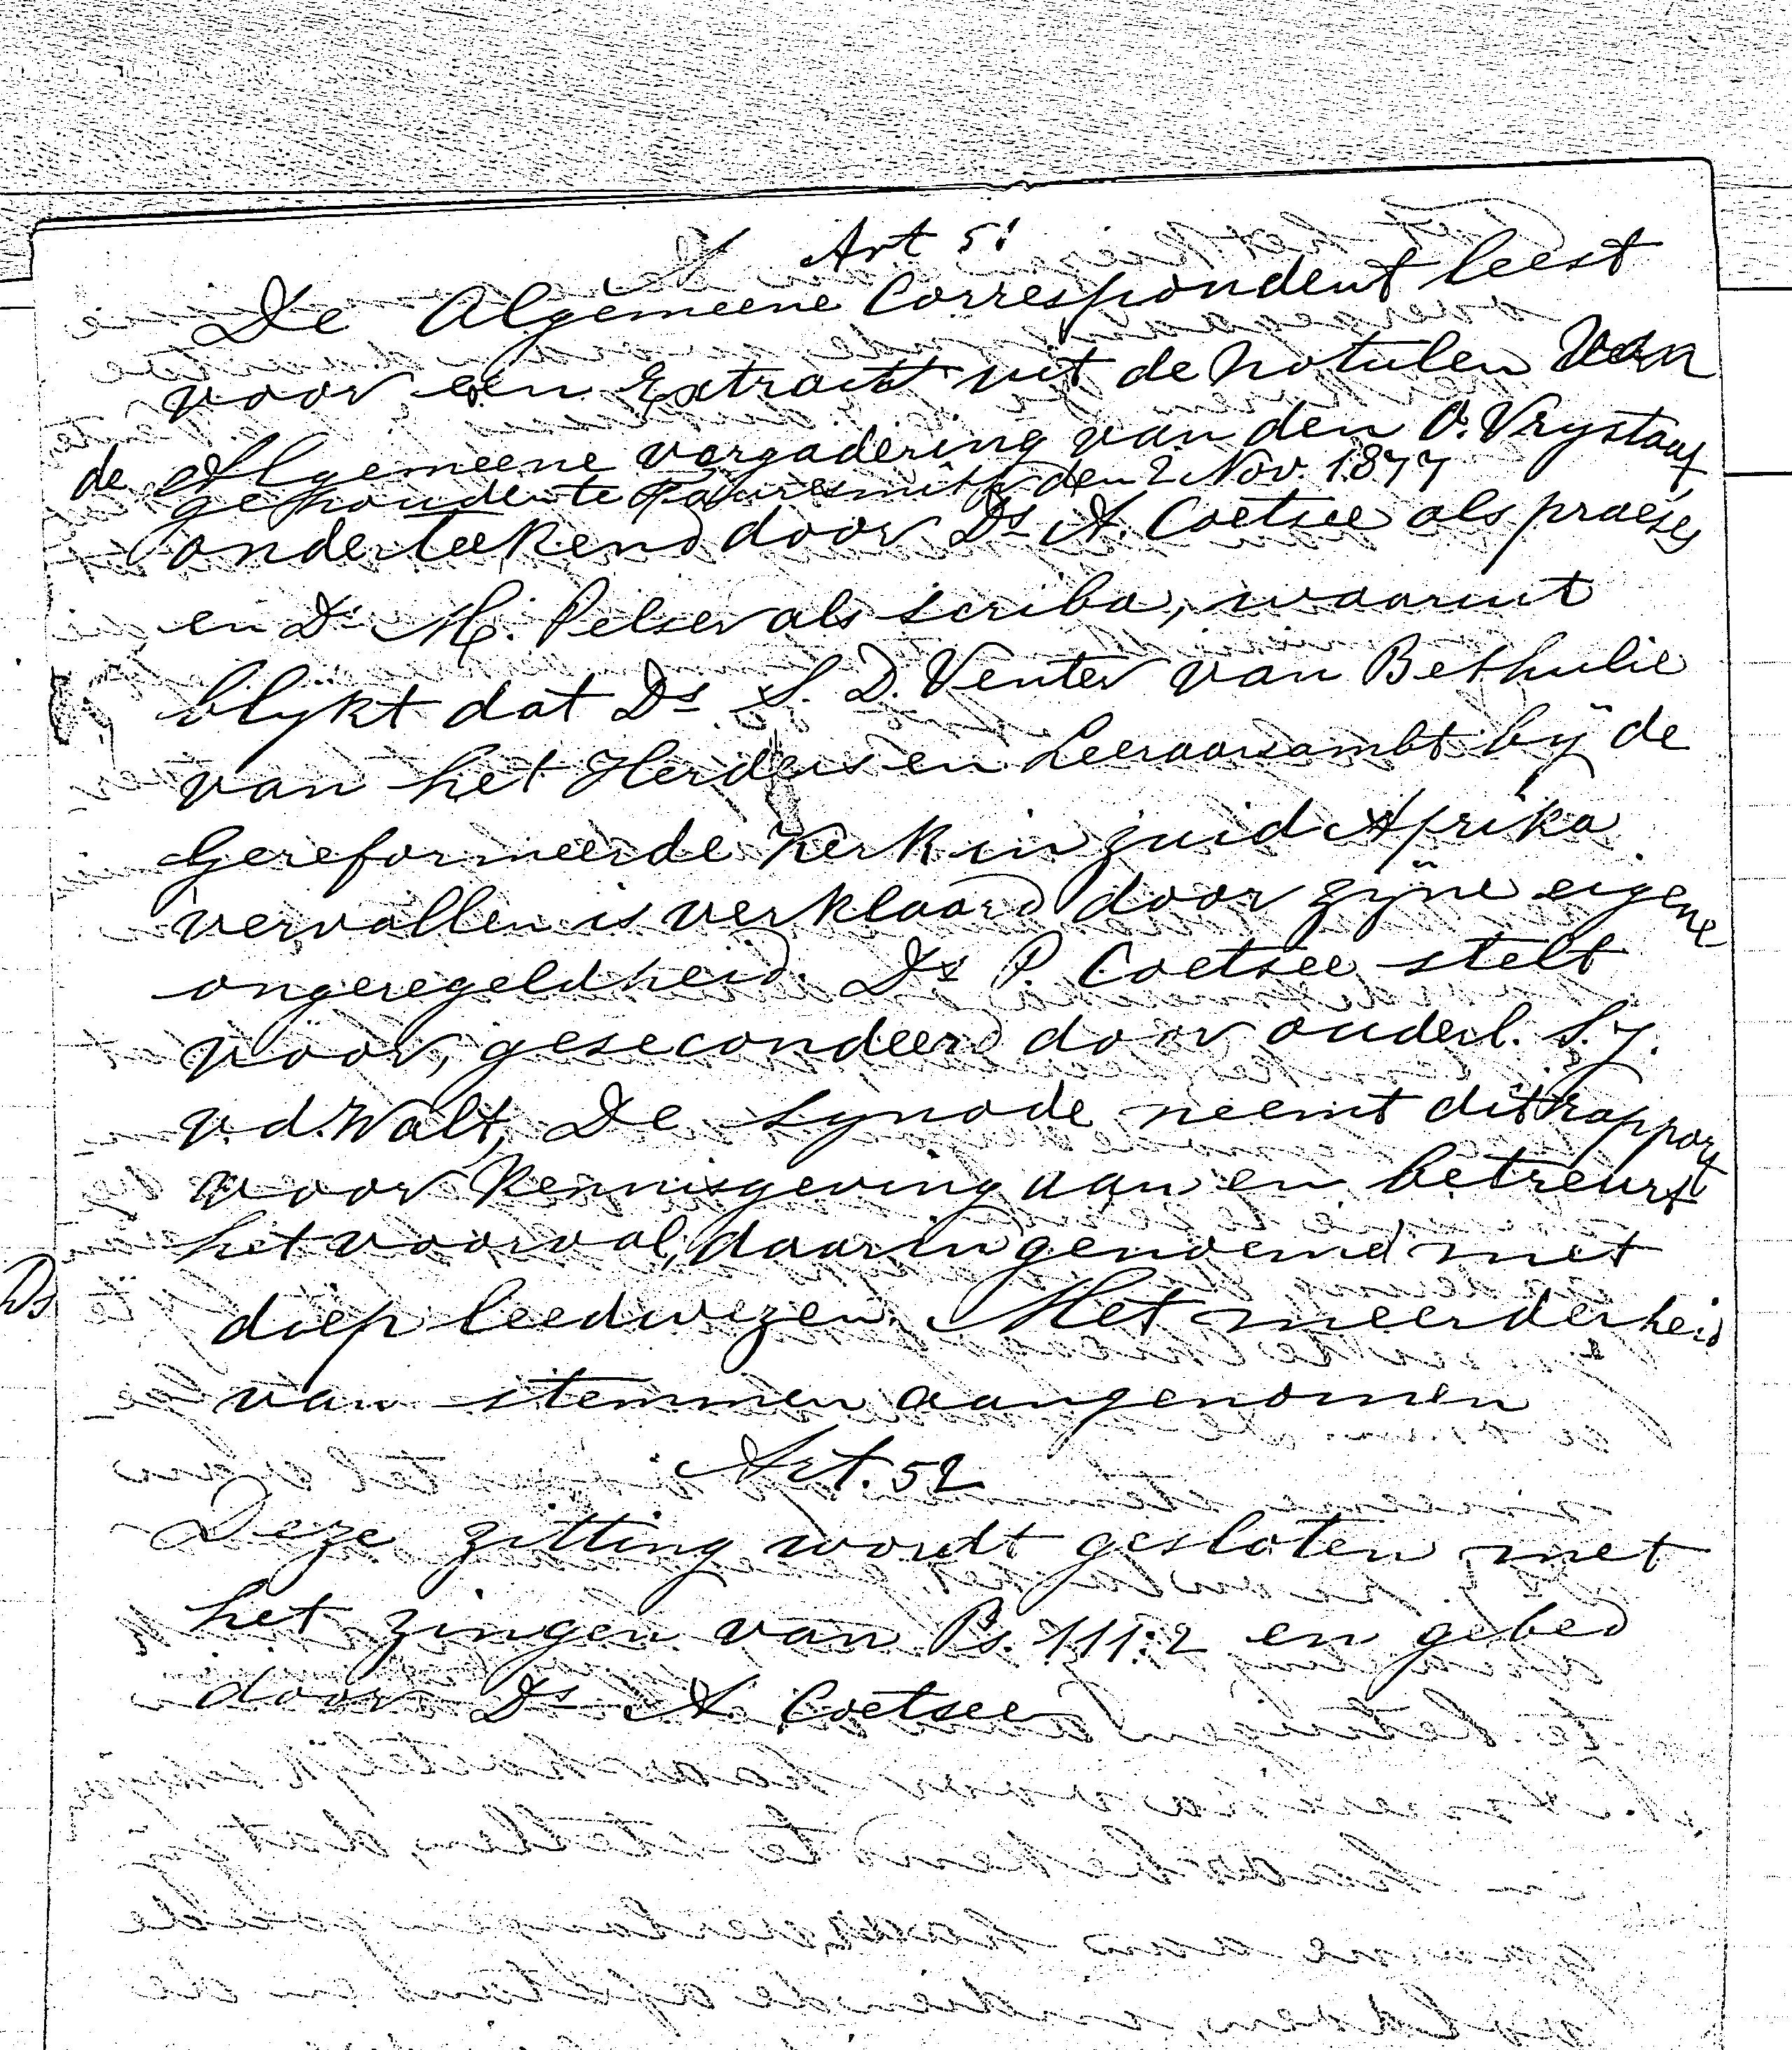 Art 51
De Algemeene Correspondent leest
voor een Extract uit de notulen van
de Algemeene vergadering van den O. Vrystaat
gehouden te Fauresmith den 2 Nov. 1877
onderteekend door Ds A. Coetsee als praeses
en Ds M. Pelser als scriba, waaruit
blijkt dat Ds S. D. Venter van Bethulie
van het Herders en Leeraarsambt bij de
Gereformeerde Kerk in Zuid Afrika
vervallen is verklaard door zijne eigene
ongeregeldheid. Ds P. Coetsee stelt
voor, gesecondeerd door ouderl. S. J.
v.d. Walt, De Synode neemt dit rapport
voor kennisgeving aan en betreurt
het voorval, daarin genoemd met
diep leedwezen. Met meerderheid
van stemmen aangenomen
Art. 52
Deze zitting wordt gesloten met
het zingen van Ps. 111:2 en gebed
door Ds A. Coetsee